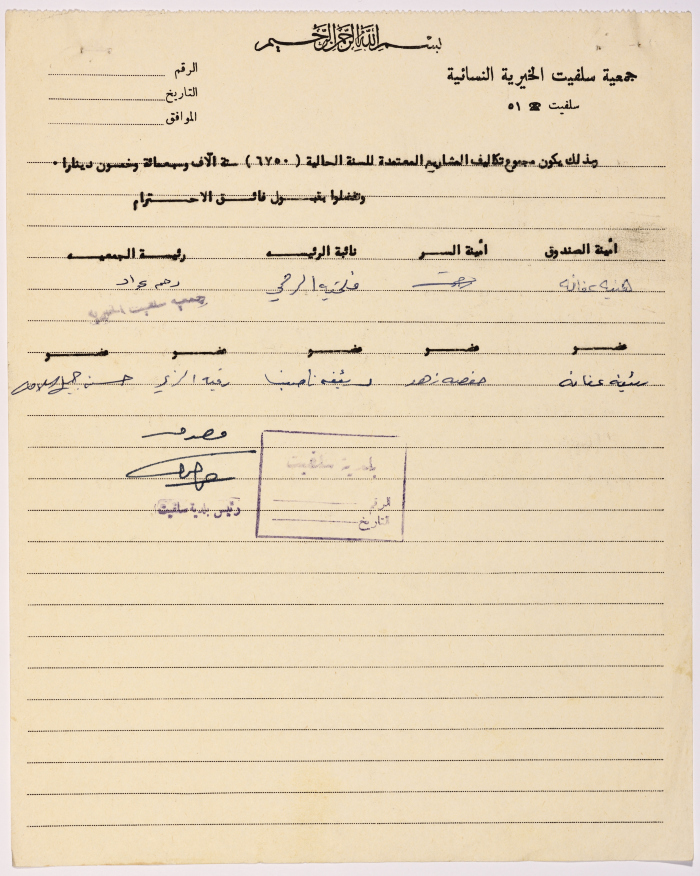 بسم الله الرحمن الرحيم
جمعية سلفيت الخيرية النسائية
سلفيت ☎ ٥١
الرقم
التاريخ
الموافق
وبذلك يكون مجموع تكاليف المشاريع المعتمدة للسنة الحالية ( ٦٧٥٠ ) ستة آلاف وسبعمائة وخمسون دينارا ٠
وتفضلوا بقبول فائق الاحترام
أمينة الصندوق أمينة السر نائبة الرئيسه رئيسة الجمعيه
هنيه عفانه فتحيه الرحمي عواد
عضو عضو عضو عضو عضو
عفانه حفصه زهد رقيه الزير حسنه
مصدق
بلدية سلفيت
الرقم
التاريخ
رئيس بلدية سلفيت